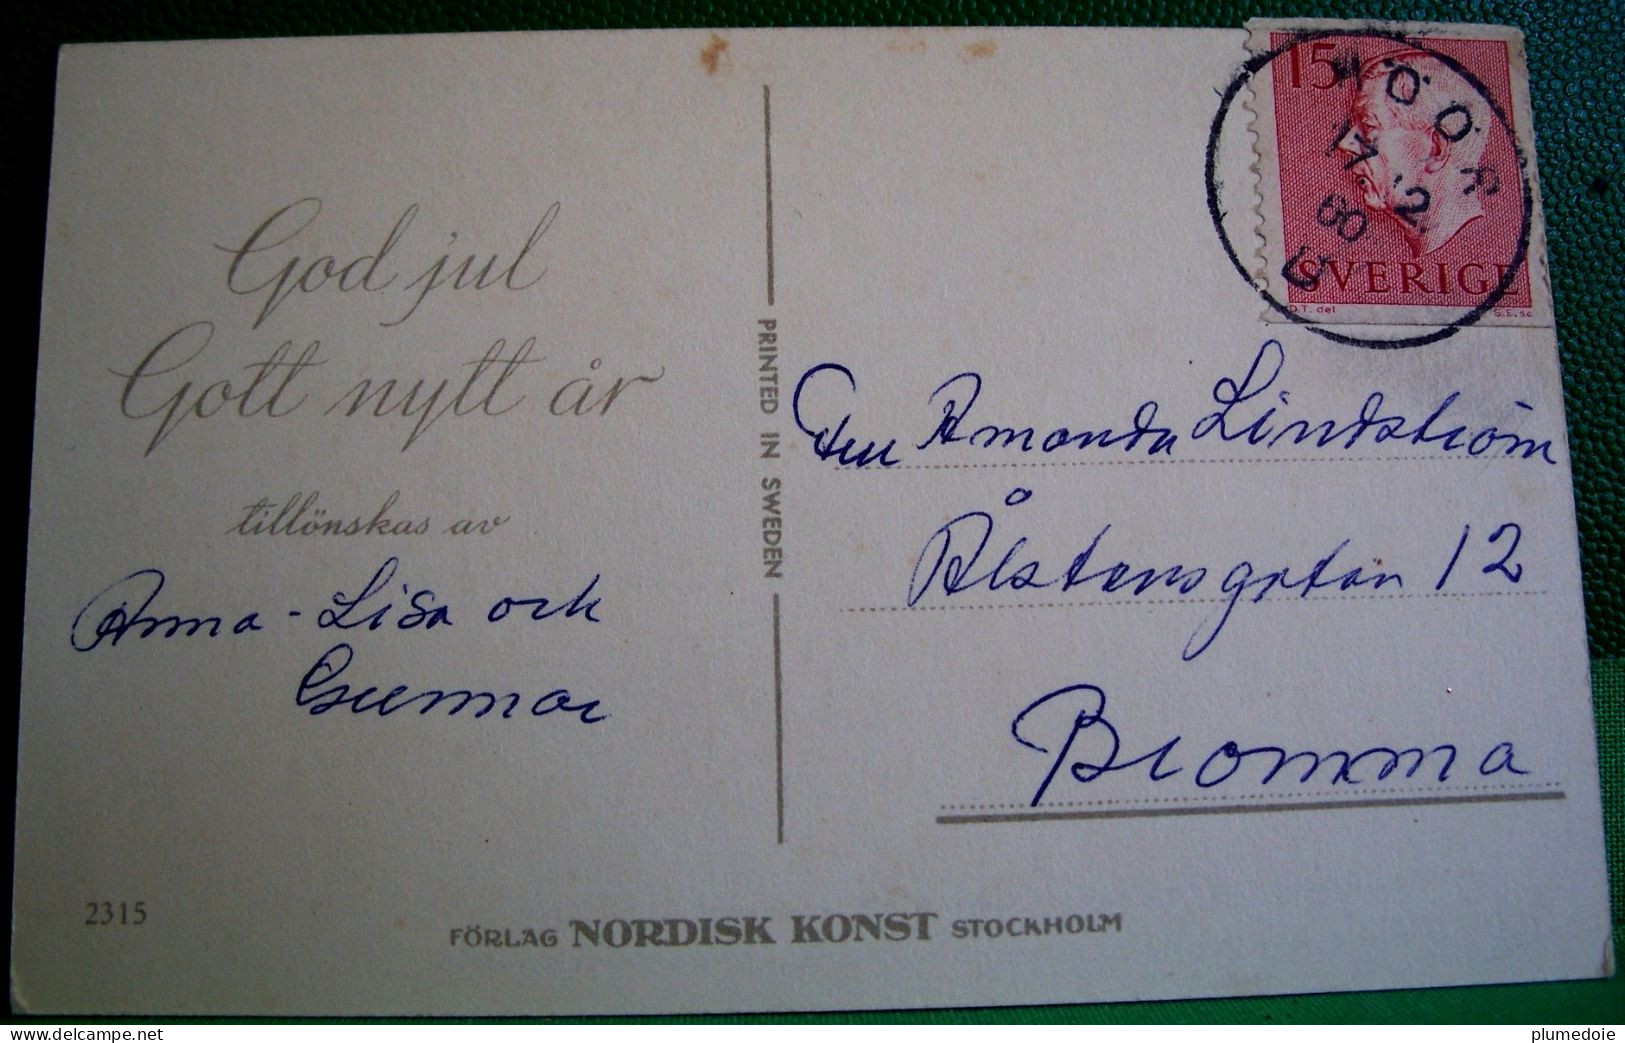 God jul
Gott nytt år
tillönskas av
Anna-Lisa och
Gunnar
2315
PRINTED IN SWEDEN
FÖRLAG NORDISK KONST STOCKHOLM
15
SVERIGE
D.T. del S.E. sc
HÖÖR
17.12
60
Fru Amanda Lindström
Ålstensgatan 12
Bromma
plumedoie